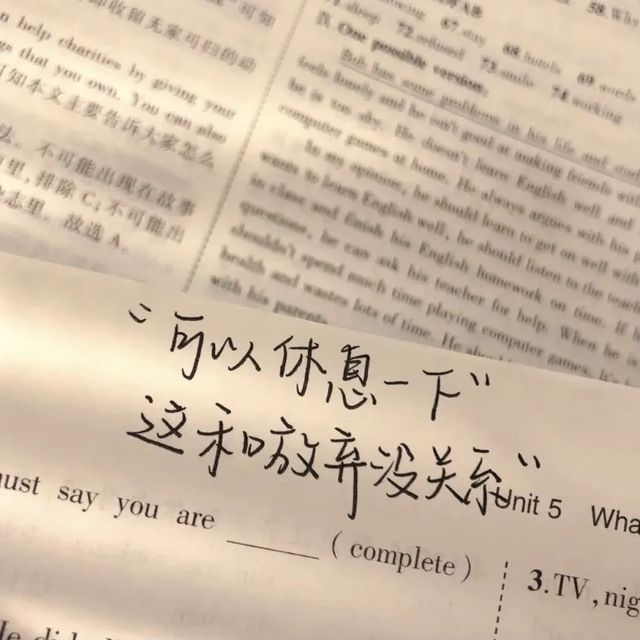 n help charities by giving your
gs that you own. You can also
可知本文主要告诉大家怎么
不可能出现在故事
排除 C; 不可能出
故选 A。
68.
69.
71.sleep 72.
73.smile
74.working
B. One possible version.
Bob has some problems in his life and
feels lonely and he isn't good at making friends with
he is too shy. He doesn't learn English well and
computer games at home. He always argues with his p
In my opinion, he should learn to get on well with
wants to learn English well, he should listen to the teach
in class and finish his English homework on time. If h
questions, he can ask his teacher for help. When he is
shouldn't spend much time playing computer games. It's
health and wastes lots of time. He
with his parents.
"可以休息一下"
这和放弃没关系"
Unit 5 Wha
must say you are ______ (complete)
3.TV, nig